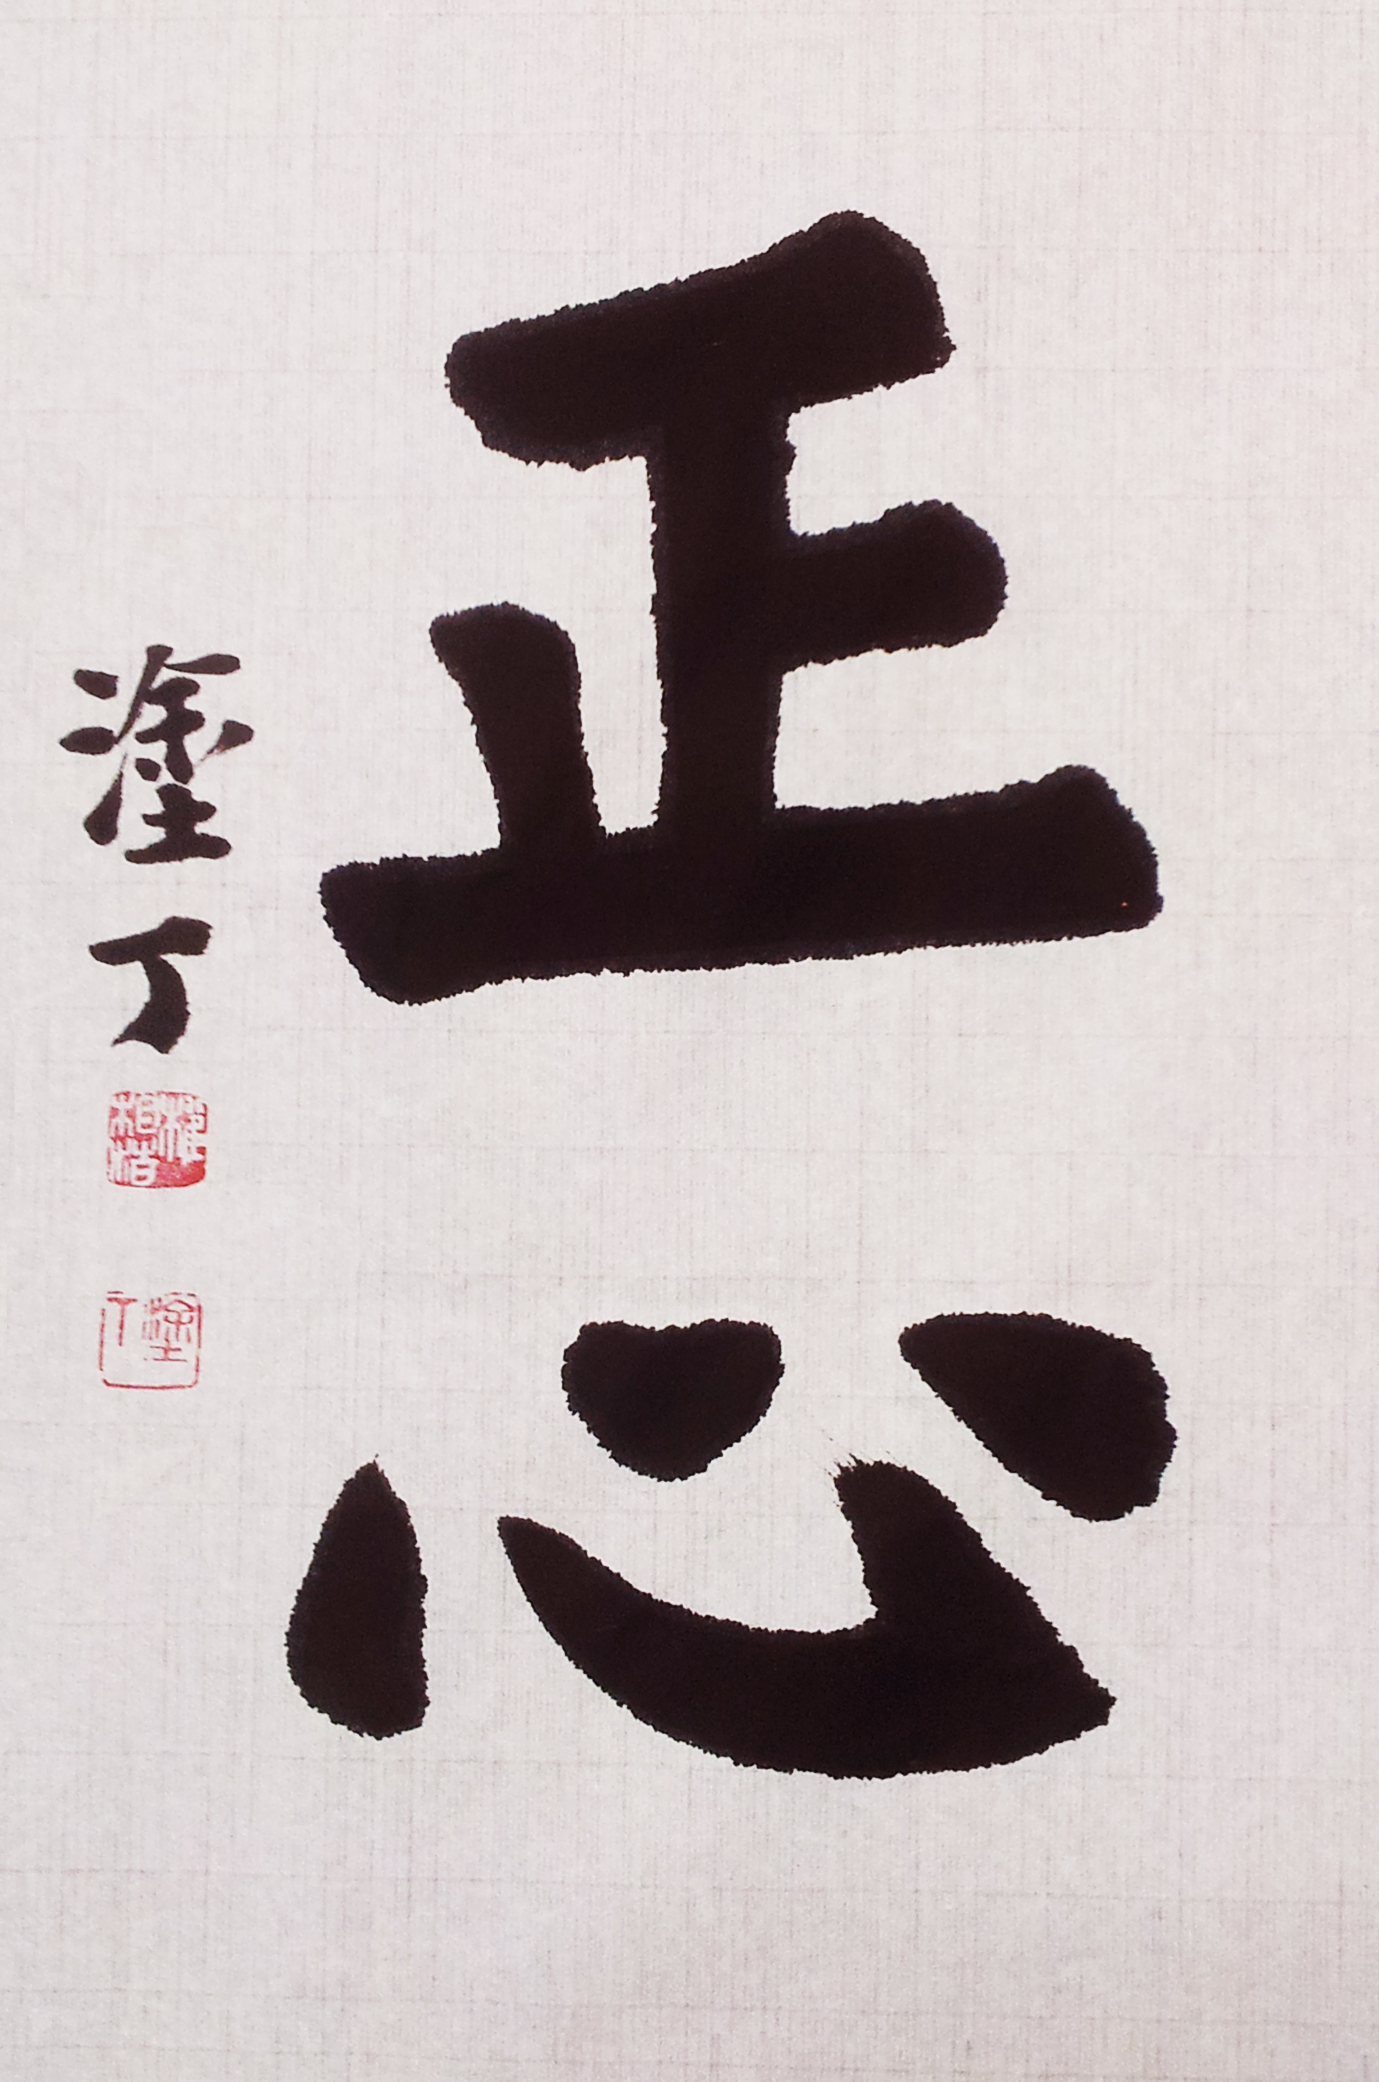 正心
塗丁
塗丁